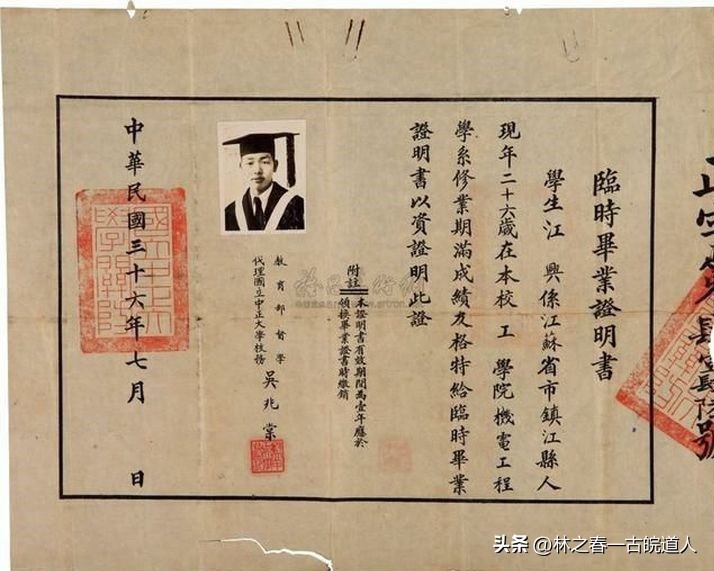 臨時畢業證明書
學生江 興係江蘇省市鎮江縣人
現年二十六歲在本校 工 學院機電工程
學系修業期滿成績及格特給臨時畢業
證明書以資證明此證
附註 本證明書有效期間爲壹年應於
領換畢業證書時繳銷
教育部督學
代理國立中正大學校務 吳兆棠
中華民國三十六年七月 日
头条 @林之春一古皖道人